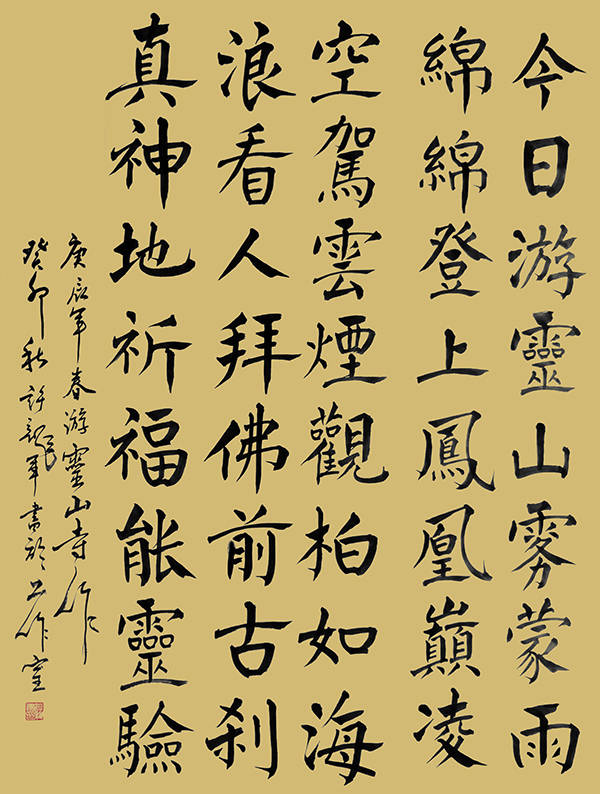 今日游靈山雾蒙雨
綿綿登上鳳凰巔凌
空駕雲煙觀柏如海
浪看人拜佛前古刹
真神地祈福能靈驗
庚辰年春游靈山寺作
癸卯秋許龍軍書於工作室